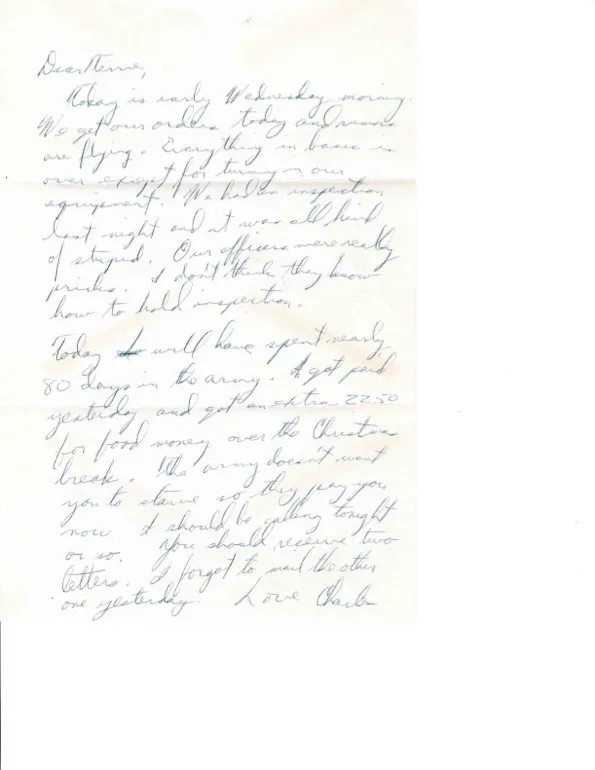 Dear Terrie,
Today is early Wednesday morning.
We get our orders today and rumors
are flying. Everything in basic is
over except for turning in our
equipment. We had an inspection
last night and it was all kind
of stupid. Our officers were really
pricks. I don't think they know
how to hold inspection.
Today I will have spent nearly
80 days in the army. I got paid
yesterday and got an extra 22.50
for food money over the Christmas
break. The army doesn't want
you to starve so they pay you
now. I should be calling tonight
or so. You should receive two
letters. I forgot to mail the other
one yesterday. Love Charles